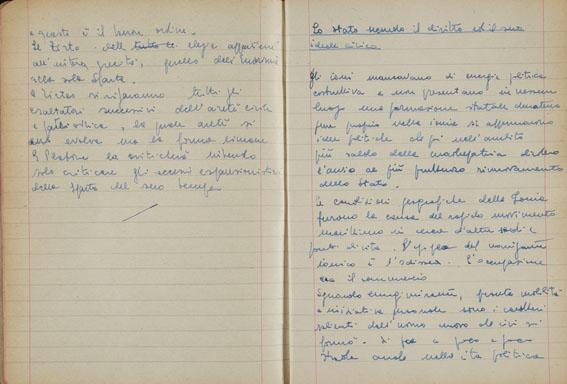 e questo è il buon ordine.
Il resto dell elegie appartiene
all'intera grecità, quello dell'Eunomia
alla sola Sparta.
A Tirteo si rifaranno tutti gli
esaltatori successivi dell'aretè civile
e patriottica, la quale aretè si
evolve ma la forma rimane
E Platone la criticherà mirando
solo criticare gli eccessi espansionistici
della Sparta del suo tempo
Lo stato secondo il diritto ed il suo
ideale civico
Gli ioni mancavano di energia politica
costruttiva e non presentano in nessun
luogo una formazione statale duratura
pure proprio nella ionia si affermarono
idee politiche che poi nell'ambito
più saldo della madrepatria diedero
l'avvio al più profondo rinnovamento
dello Stato.
Le condizioni geografiche della Ionia
furono la causa del rapido movimento
marittimo in cerca d'altre sedi e
fonti di vita. L'epopea del navigante
ionico è l'Odissea. L'occupazione
era il commercio
Sguardo lungimirante, pronta mobilità
e iniziativa personale sono i caratteri
salienti dell'uomo nuovo che ivi si
formò. Si fa a poco a poco
strada anche nella vita politica